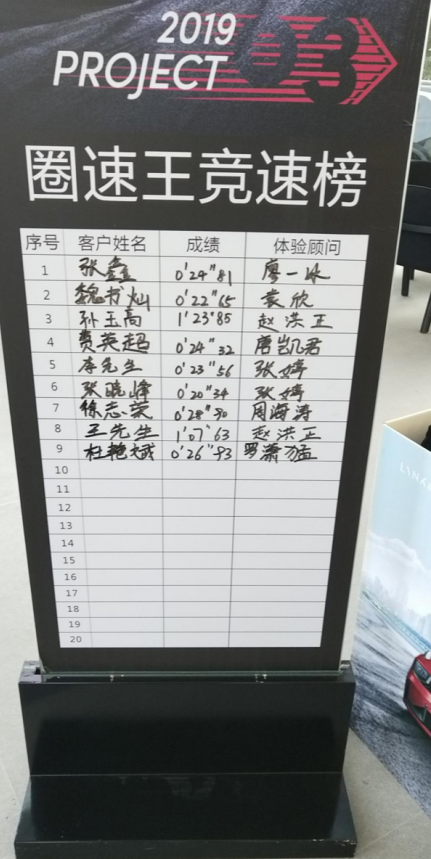 2019
PROJECT 03
圈速王竞速榜
序号 客户姓名 成绩 体验顾问
1 张鑫 0'24"81 廖一冰
2 魏书灿 0'22"65 袁欣
3 孙玉高 1'23"85 赵洪正
4 贾英超 0'24"32 唐凯君
5 李先生 0'23"56 张婷
6 张晓峰 0'20"34 张婷
7 徐志荣 0'28"90 周海涛
8 王先生 1'07"63 赵洪正
9 杜艳斌 0'26"93 罗潇猛
10
11
12
13
14
15
16
17
18
19
20
LYNK